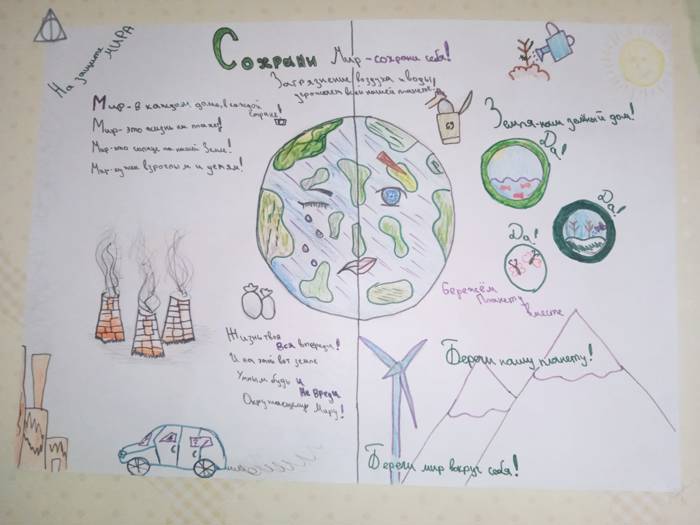 На защите МИРА
Сохрани Мир - сохрани себя!
Загрязнение воздуха и воды
угрожает всей нашей планете!
Мир - в каждом доме, в каждой
стране!
Мир - это жизнь на планете!
Мир - это солнце на нашей Земле!
Мир нужен взрослым и детям!
Земля - наш зелёный дом!
Да!
Да!
Да!
Бережём
Планету
вместе
Жизнь твоя вся впереди!
И на этой вот земле
Умным будь и не вреди
Окружающему миру!
Береги нашу планету!
Береги мир вокруг себя!